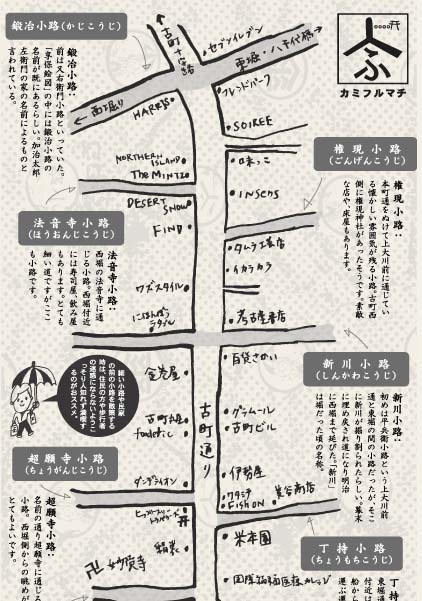 鍛冶小路(かじこうじ)
鍛冶小路：
前は又右衛門小路といっていた。
「享保絵図」の中には鍛冶小路の
名前が既にあるらしい。加治太郎
左衛門の家の名前によるものと
言われている。
古町十字路
セブンイレブン
東堀・八千代橋→
←西堀り
カミフルマチ
HARRIS
フレンドパーク
SOIREE
NORTHERN ISLAND
The MINTZ
味っこ
INSENS
DESERT SNOW
FIND
権現小路
(ごんげんこうじ)
権現小路：
本町通をぬけて上大川前に通じてい
る懐かしい雰囲気が残る小路。古町西
側に権現神社があったそうです。素敵
な店や、床屋もあります。
法音寺小路
(ほうおんじこうじ)
法音寺小路：
西堀の法音寺に通
じる小路。西堀付近
には寿司屋、飲み屋
もあります。とても
細い道ですがここ
も小路です。
タムラ工芸店
イカラカラ
ワズスタイル
にほんばしラダブル
考古堂書店
百貨さかい
新川小路
(しんかわこうじ)
新川小路：
初めは平兵衛小路という上大川前
通と東堀の間の小路だったが、そこ
に新川が掘り割られたらしい。幕末
に埋め戻され道になり明治
に西堀まで延びた。「新川」
は堀だった頃の名称。
細い小路や民家
の前の小路を散策する
時は、住民の方や歩行者
の迷惑にならないように
「そり人知れず漫喫す
るのがおススメ。
金巻屋
古町通り
グラムール
古町ビル
超願寺小路
(ちょうがんじこうじ)
超願寺小路：
名前の通り超願寺に通じる
小路。西堀側からの眺めが
とてもよいです。
ダンデライオン
伊勢屋
FISH ON
米本園
卍 妙覚寺
国際福祉医療カレッジ
丁持小路
(ちょうもちこうじ)